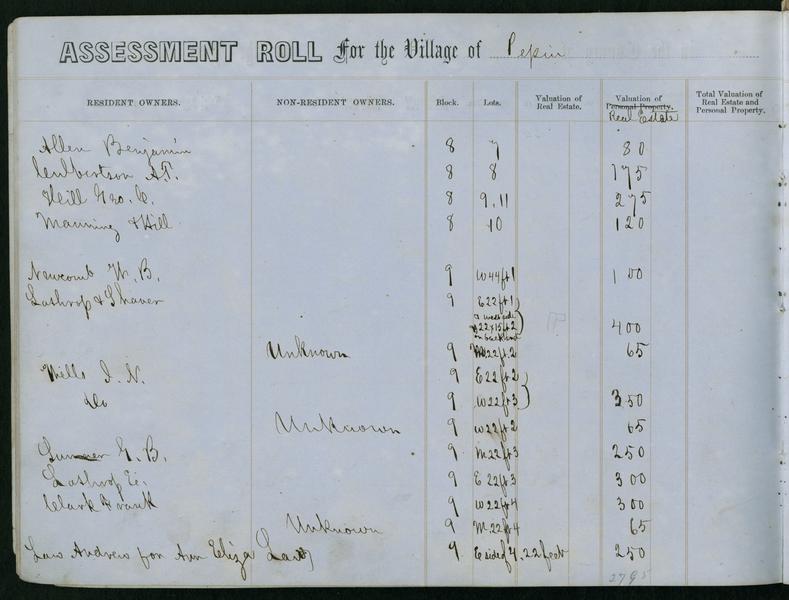 ASSESSMENT ROLL For the Village of Pepin
RESIDENT OWNERS. NON-RESIDENT OWNERS. Block. Lots. Valuation of Real Estate. Valuation of Personal Property. Real Estate Total Valuation of Real Estate and Personal Property.
Allen Benjamin 8 7 80
Culbertson A.T. 8 8 175
Hill Geo. C. 8 9, 11 275
Manning & Hill 8 10 120
Newcomb W. B. 9 W 44 ft 1 100
Lathrop & Shaver 9 E 22 ft 1
22 x 15 ft 2 400
Unknown 9 22 ft. 2 65
Wells I. N. 9 E 22 ft 2
Do 9 W 22 ft 3 350
Unknown 9 W 22 ft 2 65
G. B. 9 M 22 ft 3 250
Lathrop E. 9 E 22 ft 3 300
Clark Frank 9 W 22 ft 4 300
Unknown 9 M 22 ft 4 65
Laws Andrew for Ann Eliza Laws 9 E side of 4, 22 feet 250
2795